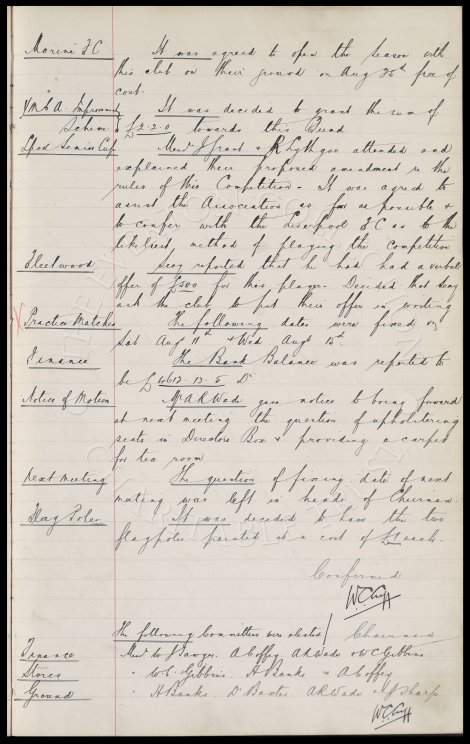 Marine F.C. It was agreed to open the season with
this club on their ground on Aug 25th free of
cost.
Y.M.C.A. Improvemt It was decided to grant the sum of
Scheme £2-2-0 towards this Fund
Lpool Senior Cup Messrs J Grant & R Rhythgoe attended and
explained their proposed amendment re the
rules of this Competition - It was agreed to
assist the Association as far as possible &
to confer with the Liverpool F.C as to the
likeliest method of playing the competition
Fleetwood Secy reported that he had had a verbal
offer of £500 for this player - Decided that Secy
ask the club to put their offer in writing
Practice Matches The following dates were fixed on
Sat Aug 11th & Wed Aug 15th
Finance The Bank Balance was reported to
be £4612.13.5 Dr
Notice of Motion Mr A R Wade gave notice to bring forward
at next meeting the question of upholstering
seats in Directors Box & providing a carpet
for tea room
Next Meeting The question of fixing date of next
meeting was left in hands of Chairman.
Flag Poles It was decided to have the two
flagpoles painted at a cost of £1 each.
Confirmed
W.C. Cuff
Chairman
The following Committees were elected
Finance Messrs W J Sawyer. A Coffey A R Wade & W C Gibbins
Stores " W C. Gibbins H Banks & A Coffey
Ground " H Banks D Baxter. A R Wade & J Sharp
W.C. Cuff